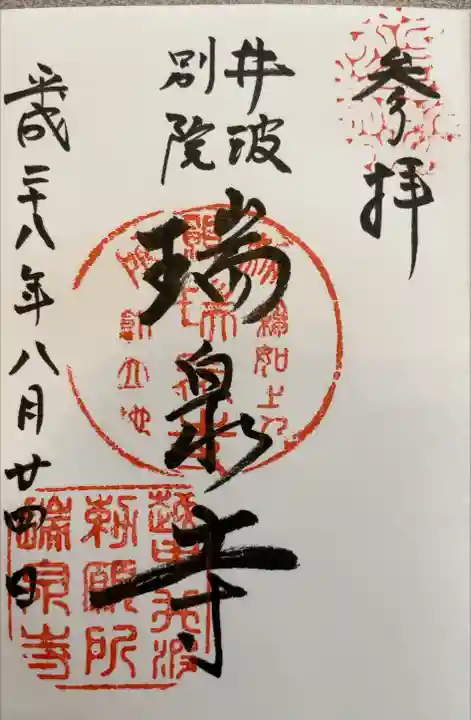 参拝
井波
別院
瑞泉寺
平成二十八年八月廿四日
越中井波
勅願所
瑞泉寺